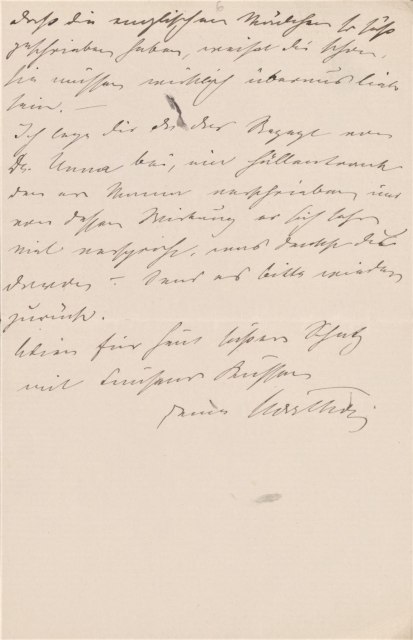 6
dass die englischen Mädchen so süß
geschrieben haben, weißt du schon,
sie müssen wirklich überaus lieb
sein. —
Ich lege Dir das Rezept von
Dr. Unna bei, ein Höllentrank
den er Mama verschrieben und
von dessen Wirkung er sich sehr
viel verspricht, was denkst Du
davon? — Send es bitte wieder
zurück.
Adieu für heut süßer Schatz
mit tausend Küssen
Deine